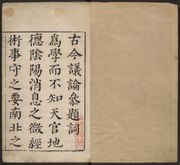 古今議論參題詞
為學而不知天官地
德陰陽消息之微經
術事守之要南北之